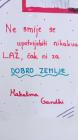 Ne smije se
upotrijebiti nikakva
LAŽ, čak ni za
DOBRO ZEMLJE
Mahatma
Gandhi